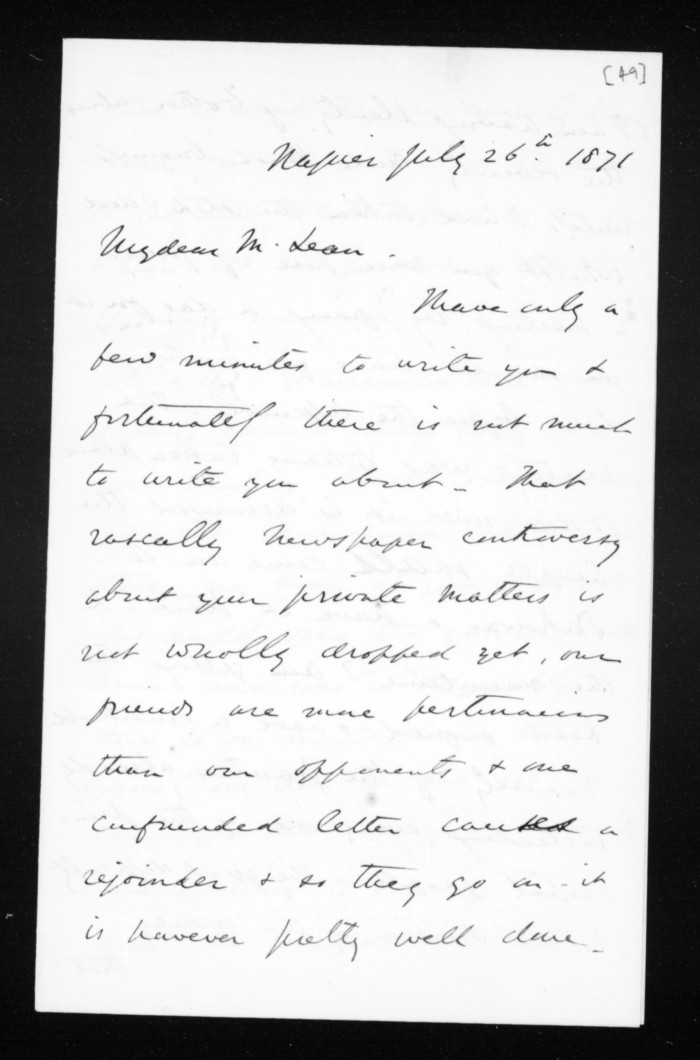 [49]
Napier July 26th 1871
My dear McLean.
I have only a
few minutes to write you &
fortunately there is not much
to write you about - That
rascally newspaper controversy
about your private matters is
not wholly dropped yet, our
friends are more pertinacious
than our opponents & one
confounded letter causes a
rejoinder & so they go on - it
is however pretty well done -